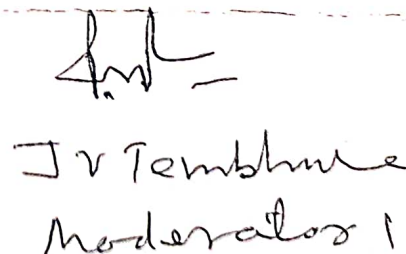 J V Tembhurne
Moderator 1